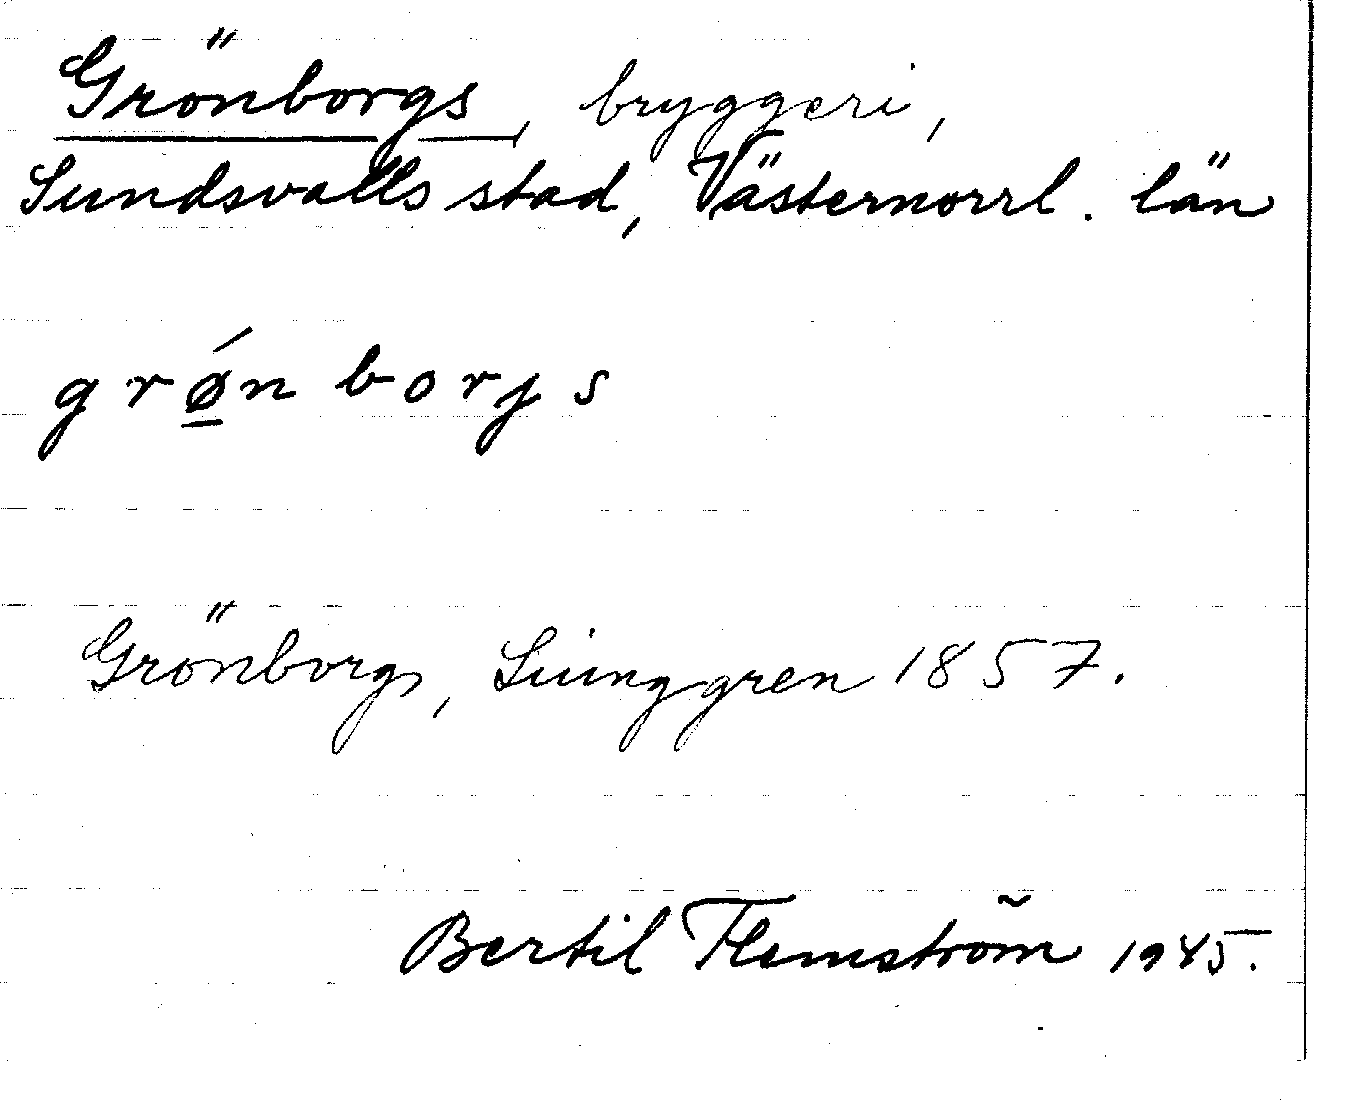 Grönborgs, bryggeri,
Sundsvalls stad, Västernorrl. län
grǿ̲n borjs
Grönborgs, Liunggren 1857.
Bertil Flemström 1945.